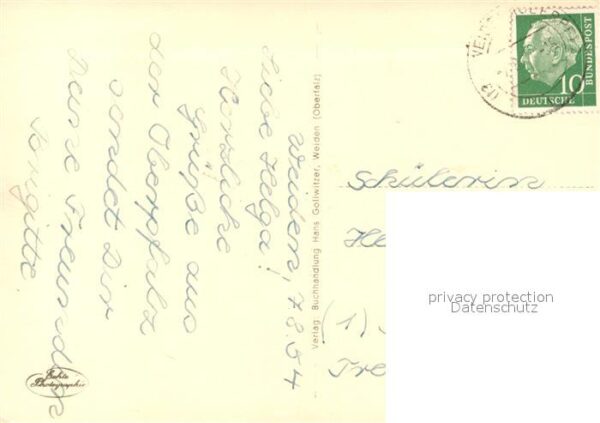 Weiden, 7.8.54
Liebe Helga!
Herzliche
Grüße aus
der Oberpfalz
sendet Dir
Deine Freundin
Brigitte
Echte
Photographie
Verlag Buchhandlung Hans Gollwitzer, Weiden (Oberfalz)
10
DEUTSCHE
BUNDESPOST
Schülerin
He
(1)
Tre
privacy protection
Datenschutz